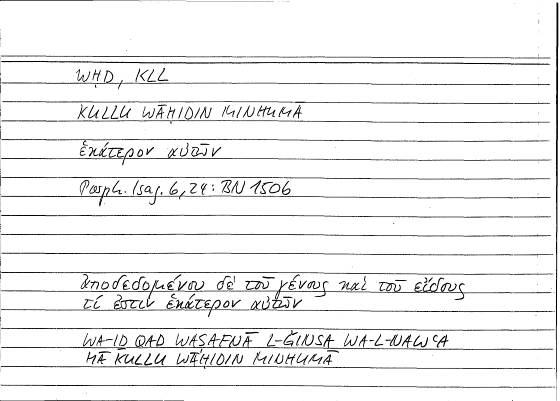 WḤD, KLL
KULLU WĀḤIDIN MINHUMĀ
ἑκάτερον αὐτῶν
Porph. Isag. 6, 24: BN 1506
ἀποδεδομένου δὲ τοῦ γένους καὶ τοῦ εἴδους
τί ἐστιν ἑκάτερον αὐτῶν
WA-ID QAD WAṢAFNĀ L-ǦINSA WA-L-NAWʿA
MĀ KULLU WĀḤIDIN MINHUMĀ